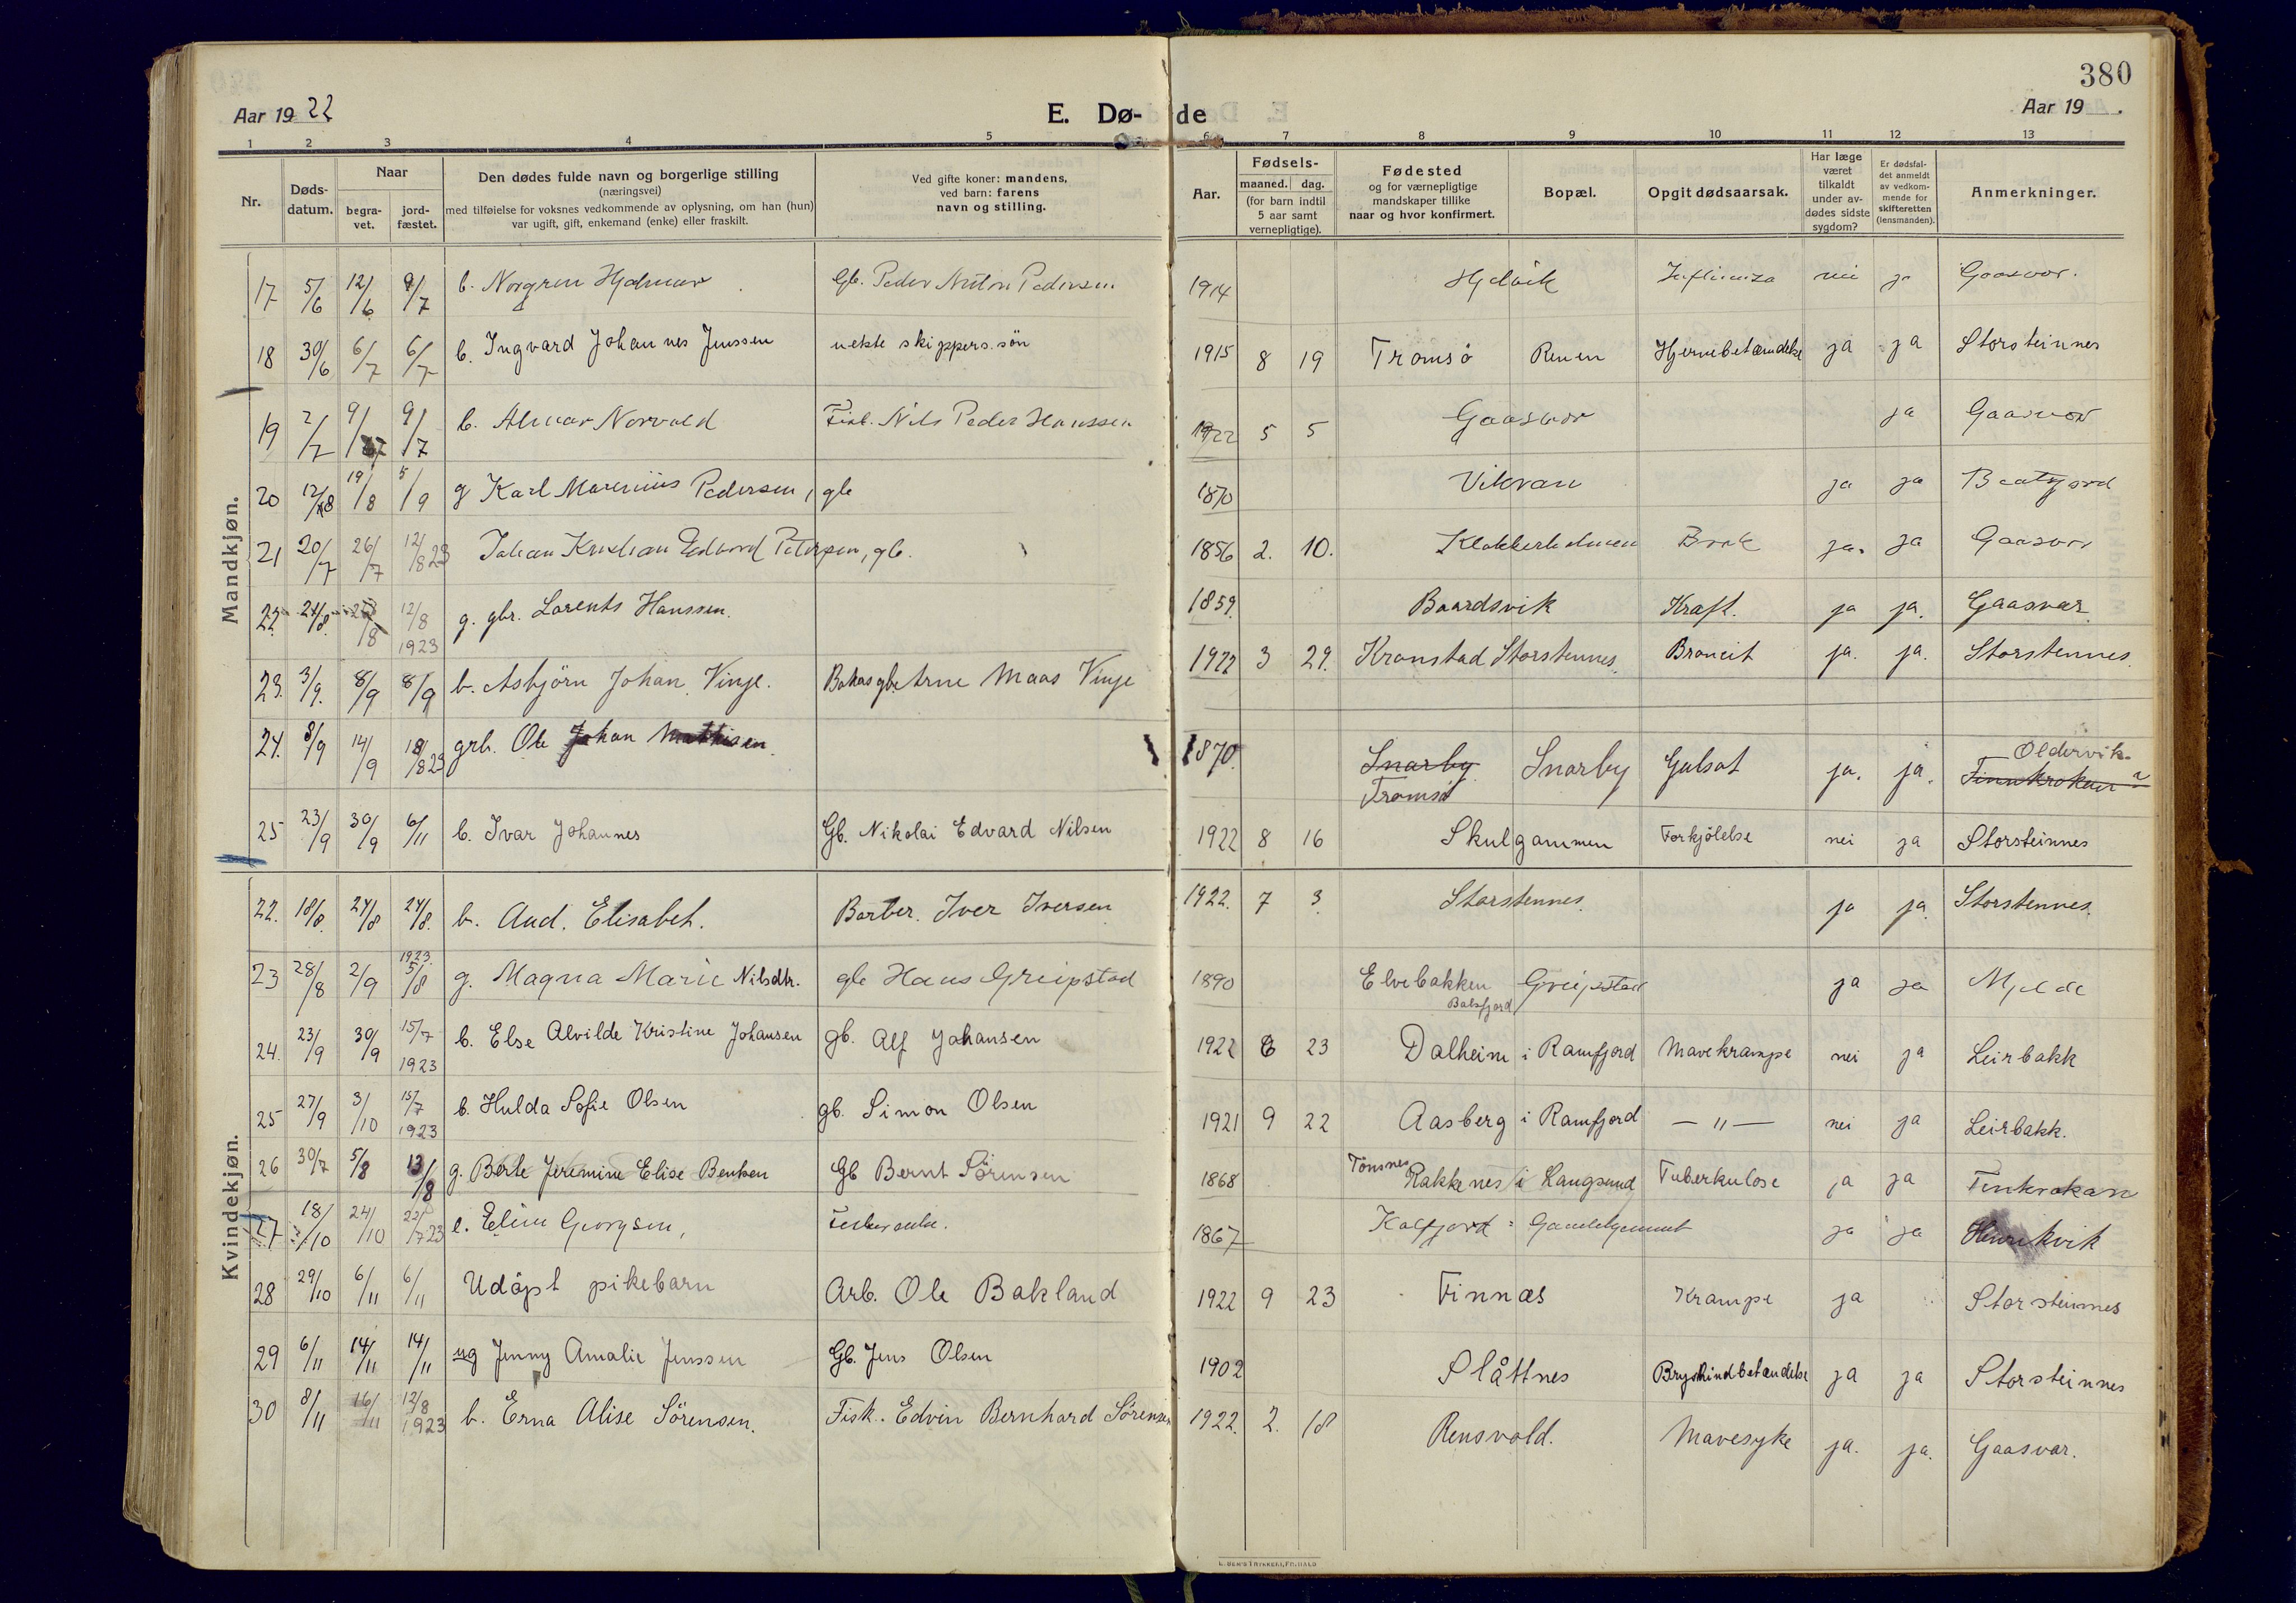 380
Aar 1922 E. Dø- de Aar 19 .
1 2 3 4 5 6 7 8 9 10 11 12 13
Nr. Døds-datum. Naar begra-vet. jord-fæstet. Den dødes fulde navn og borgerlige stilling (næringsvei) med tilføielse for voksnes vedkommende av oplysning, om han (hun) var ugift, gift, enkemand (enke) eller fraskilt. Ved gifte koner: mandens, ved barn: farens navn og stilling. Aar. Fødsels- maaned. dag. (for barn indtil 5 aar samt vernepligtige). Fødested og for værnepligtige mandskaper tillike naar og hvor konfirmert. Bopæl. Opgit dødsaarsak. Har læge været tilkaldt under av-dødes sidste sygdom? Er dødsfal-det anmeldt av vedkom-mende for skifteretten (lensmanden). Anmerkninger.
Mandkjøn.
17 5/6 12/6 9/7 b. Norgren Hjalmar Gb. Peder Anton Pedersen 1914 Hjelvik Influenza nei ja Gaasvær.
18 30/6 6/7 6/7 b. Ingvard Johannes Jenssen uekte skippers. søn 1915 8 19 Tromsø Renen Hjernebetændelse ja ja Storsteinnes
19 2/7 9/7 9/7 b. Almar Norvald Fisk. Nils Peder Hanssen 1922 5 5 Gaasvær ja Gaasvær
20 12/8 19/8 5/9 g Karl Marenius Pedersen, gb 1870 Vikran ja ja
21 20/7 26/7 12/8 23 Johan Kristian Edvard Petersen, gb. 1856 2. 10. Klokkerholmen Brok ja. ja Gaasvær
22 24/8 12/8 1923 g. gbr. Lorents Hanssen. 1859. Baardsvik Kræft. ja ja. Gaasvær
23. 3/9. 8/9 8/9 b. Asbjörn Johan Vinje. Arne Maas Vinje 1922 3 29. Kronstad Storstennes. Broncit ja. ja. Storstennes.
24. 8/9 14/9 18/8 23 grb. Ole Johan Mathisen 1870. Snarby Tromsø Snarby Gulsot ja. ja. Oldervik Finnkroken
25 23/9 30/9 6/11 b. Ivar Johannes Gb. Nikolai Edvard Nilsen 1922 8 16 Skulgammen Forkjölelse nei ja Storsteinnes
Kvindekjøn.
22. 18/8. 24/8 24/8. b. Aud. Elisabet. Barber. Iver Iversen 1922. 7 3. Storstennes. ja ja. Storstennes.
23 28/8 2/9 1923. 5/8 g. Magna Marie Nilsdtr. gb Hans Greipstad 1890 Elvebakken Balsfjord Greipstad ja ja Mjelde
24. 23/9 30/9 15/7 1923 b. Else Alvilde Kristine Johansen gb. Alf Johansen 1922 8 23 Dalheim i Ramfjord Mavekrampe nei ja Leirbakk
25 27/9 3/10 15/7 1923 b. Hulda Sofie Olsen gb. Simon Olsen 1921 9 22 Aasberg i Ramfjord — " — nei ja Leirbakk.
26 30/7 5/8 13/8 g. Berle Jeremine Elise Benken Gb Bernt Sörensen 1868 Tönsnes Rakkenes i Langsund Tuberkulose ja ja Finkroken
27 18/10 24/10 22/7 23 e. Eline Georgsen, 1867 Kalfjord ja ja Henrikvik
28 29/10 6/11 6/11 Udöpt pikebarn Arb. Ole Bakland 1922 9 23 Finnæs Krampe ja Storsteinnes
29 6/11 14/11 14/11 ug Jenny Amalie Jenssen Gb. Jens Olsen 1902 Slåttnes Brysthindbetændelse ja ja Storsteinnes
30 8/11 16/11 12/8 1923 b. Erna Alise Sörensen. Fisk. Edvin Bernhard Sörensen 1922. 2. 18 Rensvold. Mavesyke ja. ja. Gaasvær.